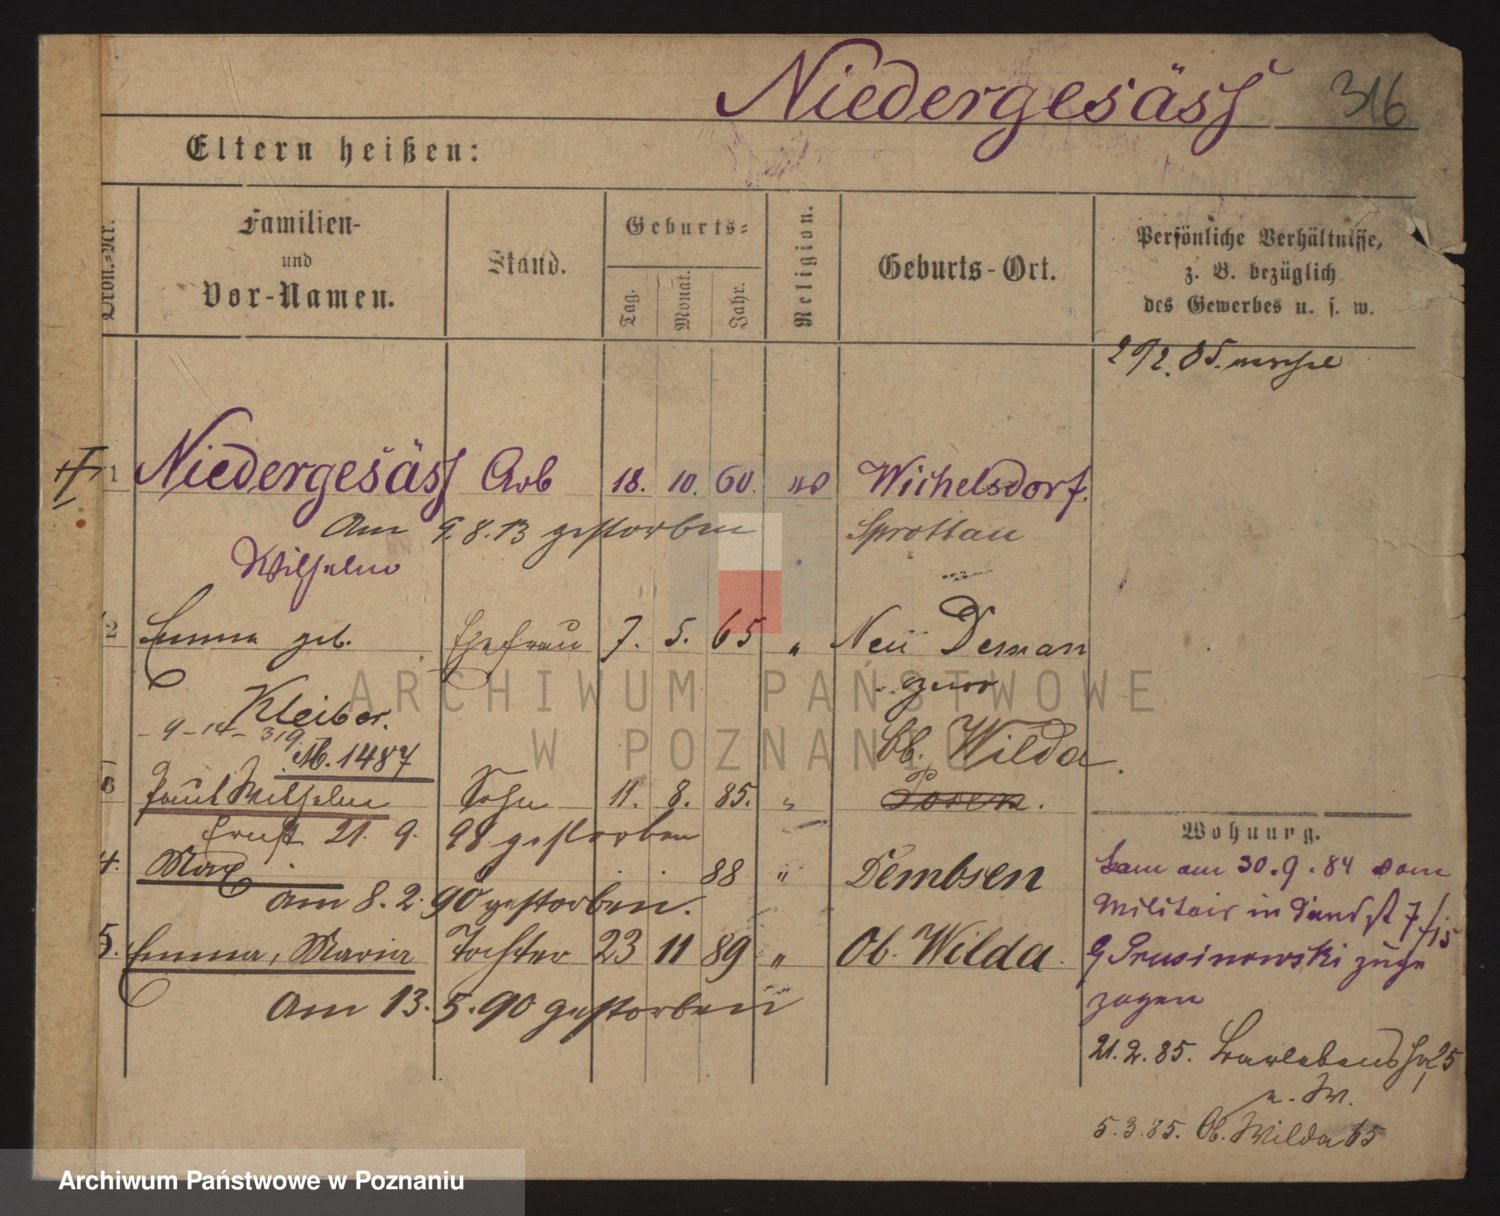 Niedergesäss 316
Eltern heißen:
Ordn.-Nr.
Familien-
und
Vor-Namen.
Stand.
Geburts-
Tag. Monat. Jahr.
Religion.
Geburts-Ort.
Persönliche Verhältnisse,
z. B. bezüglich
des Gewerbes u. s. w.
1 Niedergesäss Arb 18. 10. 60. Wichelsdorf.
Am 9.8.13 gestorben Sprottau
Wilhelm
2 Emma geb. Ehefrau 7. 5. 65 " Neu Deman
Kleiber.
- 9 - 14 - 319
M. 1487
Ob. Wilda.
3 Paul Wilhelm Sohn 11. 8. 85. " Posen.
Ernst 21. 9. 98 gestorben
4. Max 88 " Dembsen
am 8. 2. 90 gestorben.
5. Emma, Maria Tochter 23 11 89 " Ob. Wilda.
Am 13. 5. 90 gestorben
Wohnung.
kam am 30.9.84 vom
Militair in
Prusinowski zuge
zogen
21.2.85. 25
u. W.
5.3.85. Ob. Wilda 65
ARCHIWUM PAŃSTWOWE
W POZNANIU
Archiwum Państwowe w Poznaniu